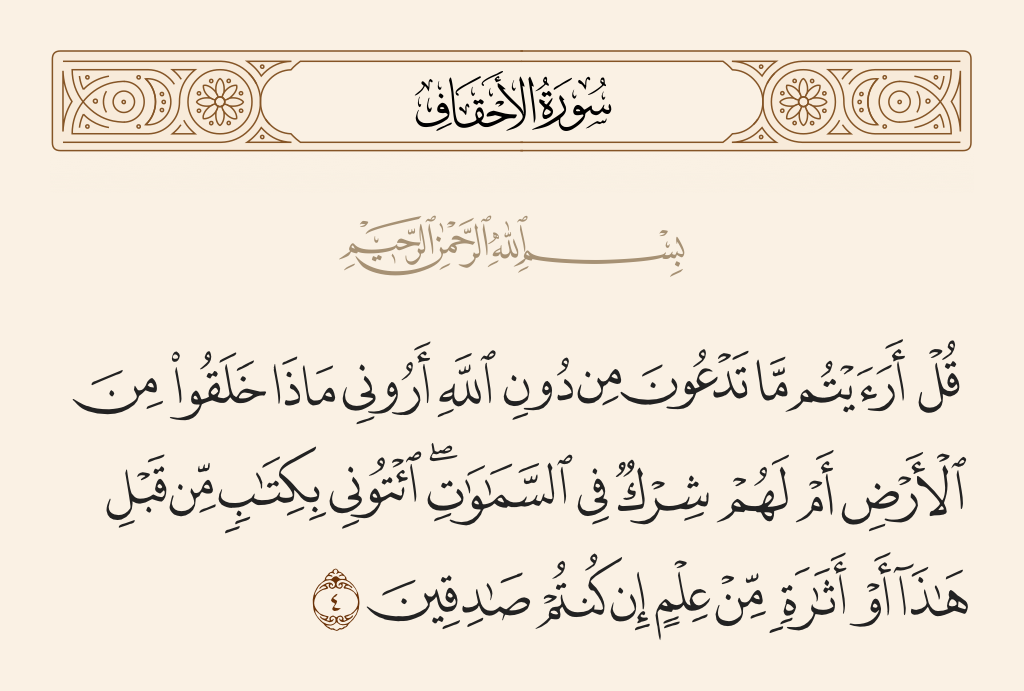 سُورَةُ الأَحْقَافِ
بِسْمِ ٱللَّهِ ٱلرَّحْمَٰنِ ٱلرَّحِيمِ
قُلْ أَرَءَيْتُم مَّا تَدْعُونَ مِن دُونِ ٱللَّهِ أَرُونِى مَاذَا خَلَقُوا۟ مِنَ
ٱلْأَرْضِ أَمْ لَهُمْ شِرْكٌ فِى ٱلسَّمَٰوَٰتِ ۖ ٱئْتُونِى بِكِتَٰبٍ مِّن قَبْلِ
هَٰذَآ أَوْ أَثَٰرَةٍ مِّنْ عِلْمٍ إِن كُنتُمْ صَٰدِقِينَ ٤